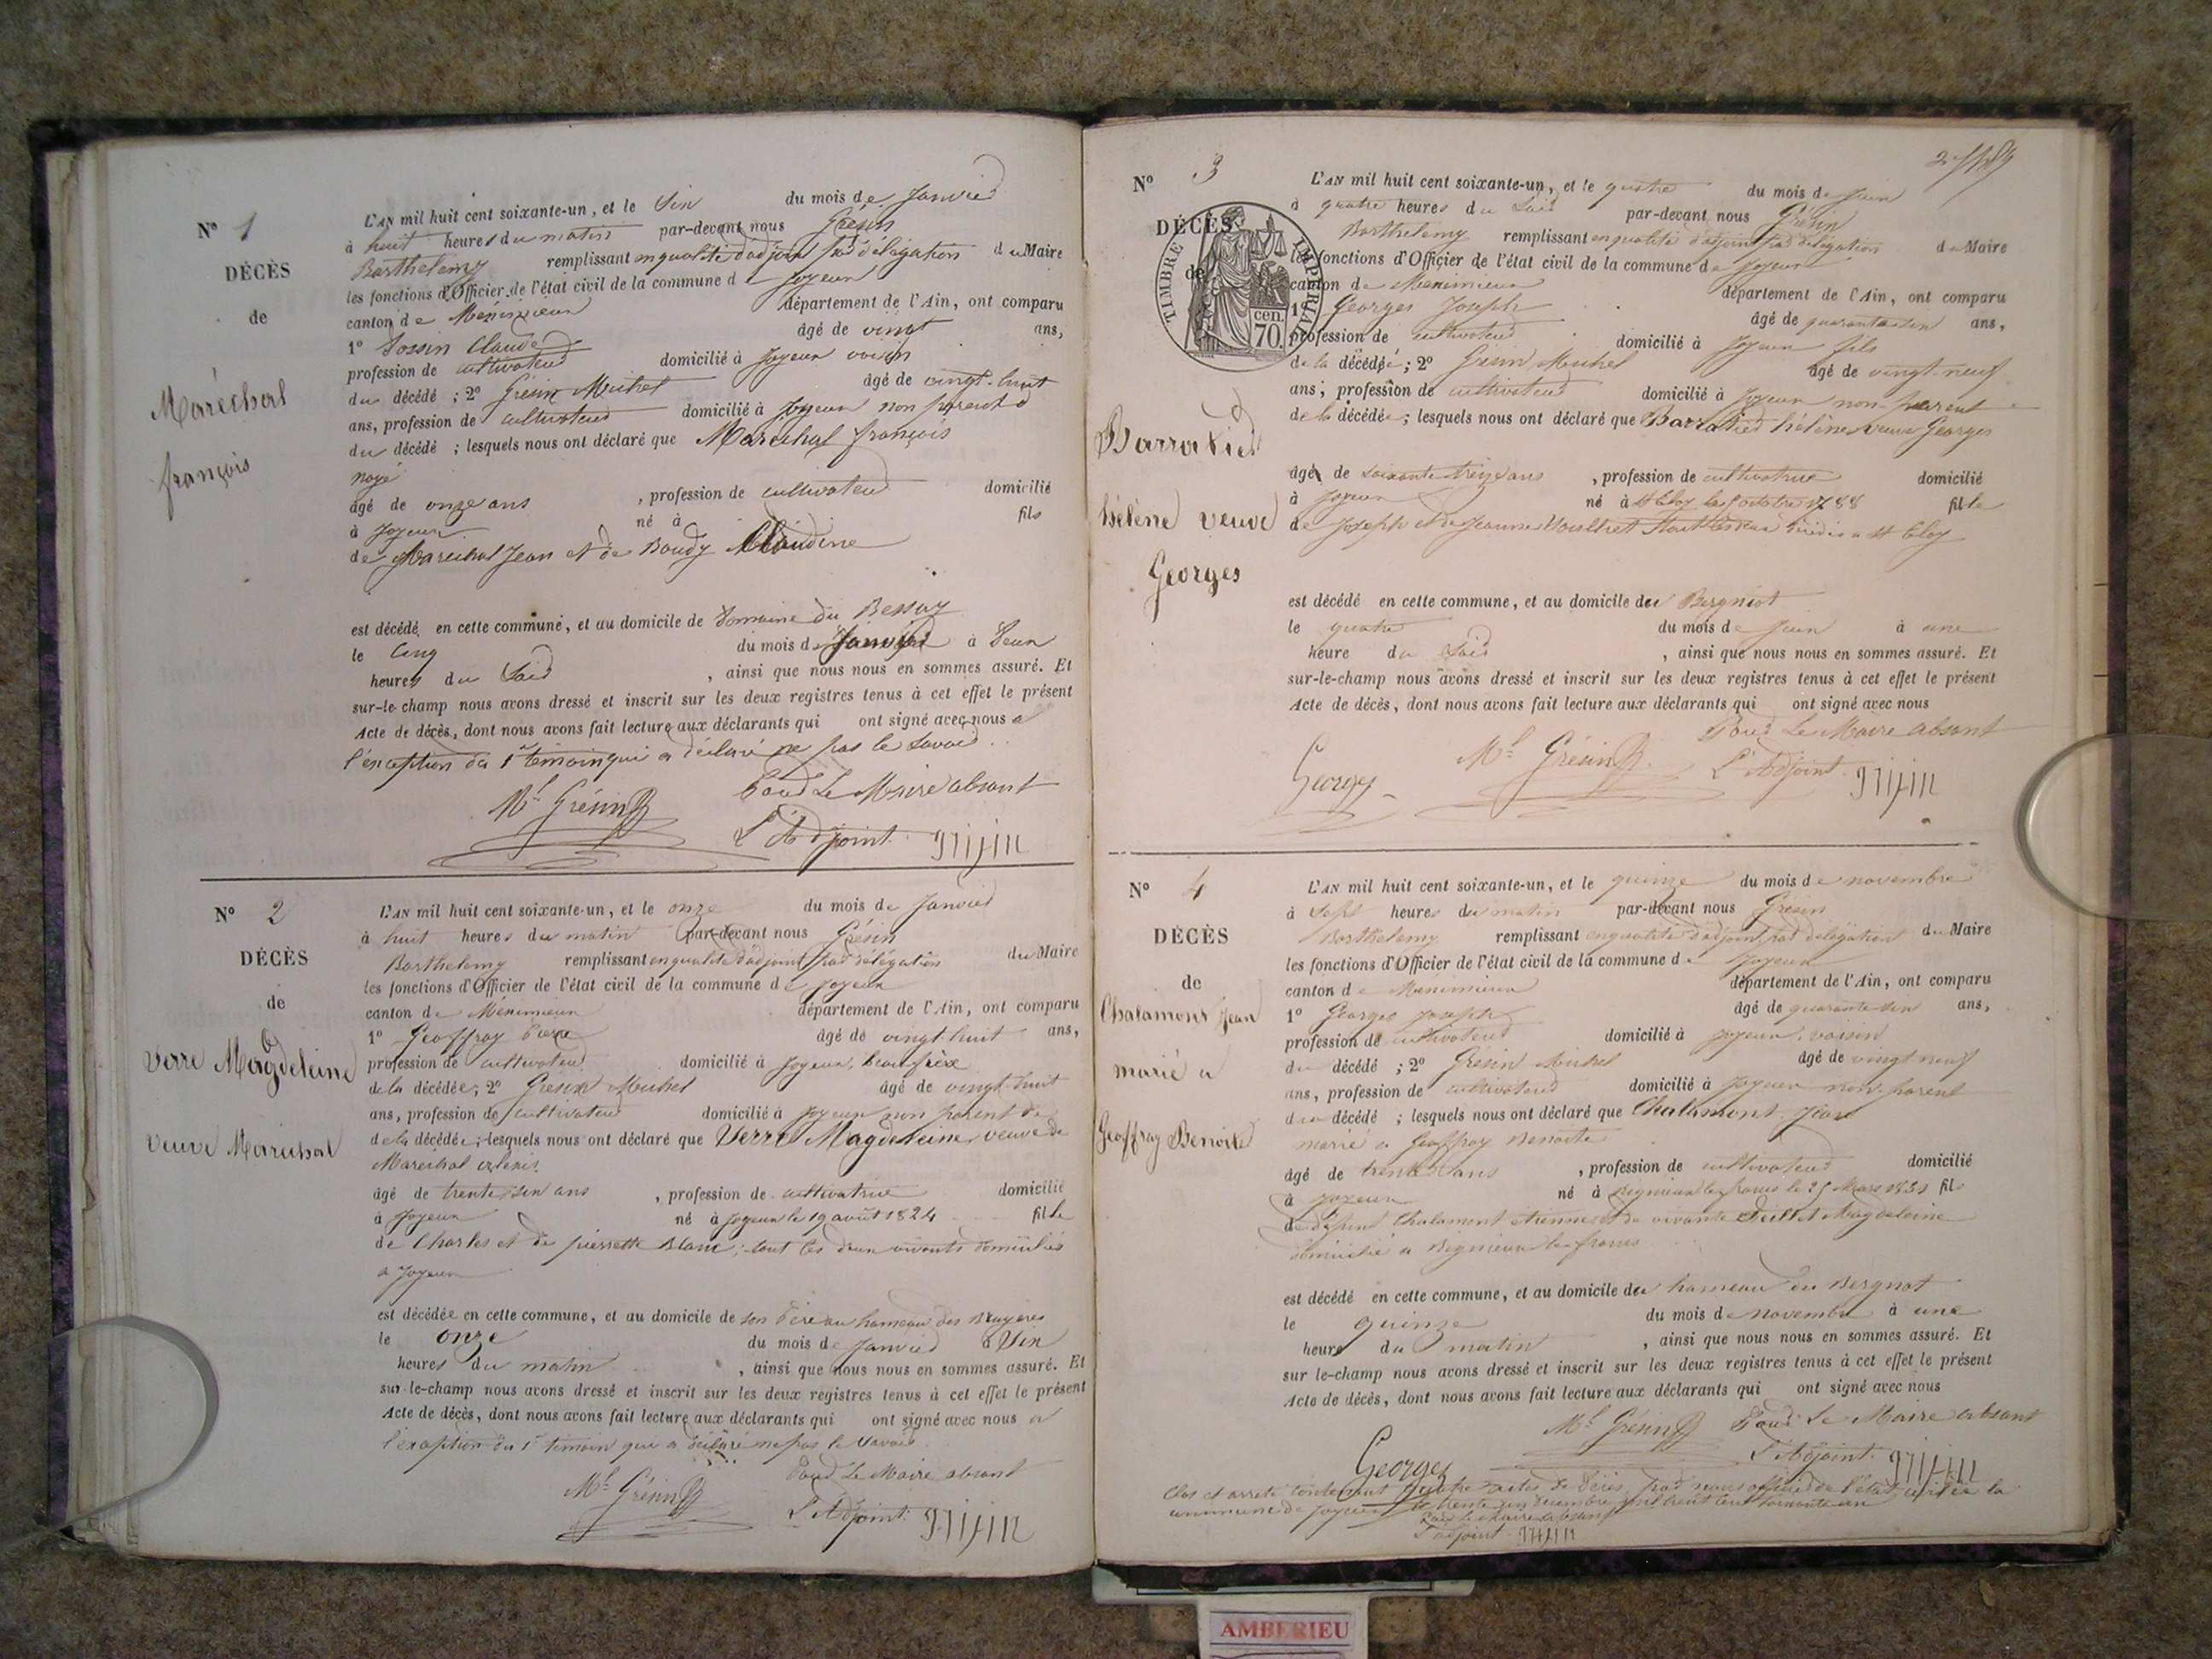 N° 1
DÉCÈS
de
Maréchal
françois
L'AN mil huit cent soixante-un, et le Six du mois de Janvier
à huit heures du matin par-devant nous Grésin
Barthelemy remplissant en qualité d'adjoint par délégation du Maire
les fonctions d'Officier de l'état civil de la commune de Joyeux
canton de Méximieux département de l'Ain, ont comparu
1° Claude âgé de vingt ans,
profession de cultivateur domicilié à Joyeux voisin
du décédé ; 2° Grésin Michel âgé de vingt-huit
ans, profession de cultivateur domicilié à Joyeux non parent
du décédé ; lesquels nous ont déclaré que Marechal françois
noyé
âgé de onze ans , profession de cultivateur domicilié
à Joyeux né à fils
de Marechal Jean et de Boudy Claudine
est décédé en cette commune, et au domicile de Domaine du Bessay
le Cinq du mois de Janvier à Deux
heures du Soir , ainsi que nous nous en sommes assuré. Et
sur-le-champ nous avons dressé et inscrit sur les deux registres tenus à cet effet le présent
Acte de décès, dont nous avons fait lecture aux déclarants qui ont signé avec nous a
l'exception du 1er témoin qui a déclaré ne pas le Savoir.
Pour Le Maire absant
Ml Grésin
L'Adjoint grésin
N° 2
DÉCÈS
de
Verre Magdeleine
veuve Maréchal
L'AN mil huit cent soixante-un, et le onze du mois de Janvier
à huit heures du matin par-devant nous Grésin
Barthelemy remplissant en qualité d'adjoint par délégation du Maire
les fonctions d'Officier de l'état civil de la commune de Joyeux
canton de Méximieux département de l'Ain, ont comparu
1° Geoffray Pierre âgé de vingt-huit ans,
profession de cultivateur domicilié à Joyeux, beau frère
de la décédée; 2° Gresin Michel âgé de vingt-huit
ans, profession de cultivateur domicilié à Joyeux non parent de
de la décédée; lesquels nous ont déclaré que Verre Magdeleine veuve de
Maréchal alexis
âgé de trente six ans , profession de cultivatrice domicilié
à Joyeux né à Joyeux le 19 août 1824 fille
de Charles et de pierrette Blanc; tout les deux vivants domiciliés
a Joyeux
est décédée en cette commune, et au domicile de son Père au hameau des Bruyères
le onze du mois de Janvier à Six
heures du matin , ainsi que nous nous en sommes assuré. Et
sur-le-champ nous avons dressé et inscrit sur les deux registres tenus à cet effet le présent
Acte de décès, dont nous avons fait lecture aux déclarants qui ont signé avec nous a
l'exception du 1er témoin qui a déclaré ne pas le Savoir.
Pour Le Maire absant
Ml Grésin
L'Adjoint grésin
N° 3
DÉCÈS
de
TIMBRE IMPERIAL
70 cen.
Barratier
hélène veuve
Georges
L'AN mil huit cent soixante-un, et le quatre du mois de Juin
à quatre heures du Soir par-devant nous Grésin
Barthelemy remplissant en qualité d'adjoint par délégation du Maire
les fonctions d'Officier de l'état civil de la commune de Joyeux
canton de Meximieux département de l'Ain, ont comparu
1° Georges Joseph âgé de quarante six ans,
profession de cultivateur domicilié à Joyeux fils
de la décédée ; 2° Grésin Michel âgé de vingt-neuf
ans; profession de cultivateur domicilié à Joyeux non-parent
de la décédée; lesquels nous ont déclaré que Barratier hélène veuve Georges
âgé de soixante treize ans , profession de cultivatrice domicilié
à Joyeux né à St Eloy le octobre 1788 fille
de Joseph et de Jeanne tout les deux décédés a St Eloy
est décédé en cette commune, et au domicile du Bergniot
le quatre du mois de Juin à une
heure du Soir , ainsi que nous nous en sommes assuré. Et
sur-le-champ nous avons dressé et inscrit sur les deux registres tenus à cet effet le présent
Acte de décès, dont nous avons fait lecture aux déclarants qui ont signé avec nous
Pour Le Maire absant
Georges Ml Grésin L'Adjoint grésin
N° 4
DÉCÈS
de
Chalamont Jean
marié a
Geoffray Benoite
L'AN mil huit cent soixante-un, et le quinze du mois de novembre
à Sept heures du matin par-devant nous Grésin
Barthelemy remplissant en qualité d'adjoint par délégation du Maire
les fonctions d'Officier de l'état civil de la commune de Joyeux
canton de Meximieux département de l'Ain, ont comparu
1° Georges Joseph âgé de quarante six ans,
profession de cultivateur domicilié à Joyeux, voisin
du décédé ; 2° Grésin Michel âgé de vingt neuf
ans, profession de cultivateur domicilié à Joyeux non-parent
du décédé ; lesquels nous ont déclaré que Chalamont Jean
marié a Geoffray Benoite
âgé de trente ans , profession de cultivateur domicilié
à Joyeux né à Rignieux le franc le 25 Mars 1831 fils
de défunt Chalamont étienne et de vivante Magdeleine
domicilié a Rignieux le franc
est décédé en cette commune, et au domicile du hameau du Bergnot
le quinze du mois de novembre à une
heure du matin , ainsi que nous nous en sommes assuré. Et
sur le-champ nous avons dressé et inscrit sur les deux registres tenus à cet effet le présent
Acte de décès, dont nous avons fait lecture aux déclarants qui ont signé avec nous
Ml Grésin Pour Le Maire absant
Georges L'Adjoint grésin
Clos et arreté contenant quatre actes de Décès, par nous officier de l'état civil de la
commune de Joyeux le trente un décembre mil huit cent soixante un
Pour le Maire absant
L'adjoint grésin
AMBERIEU